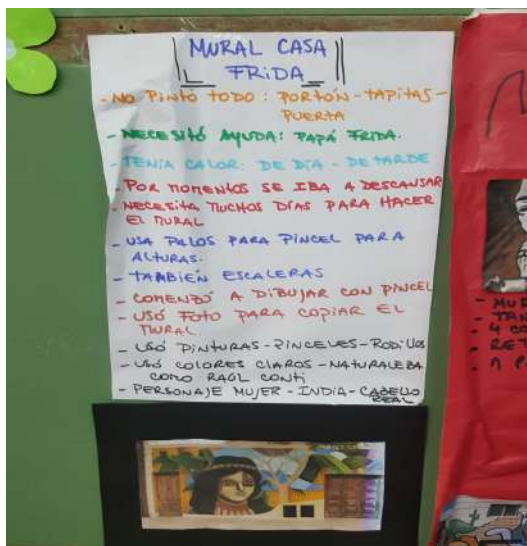 MURAL CASA
FRIDA
- NO PINTÓ TODO: PORTÓN - TAPITAS -
PUERTA
- NECESITÓ AYUDA: PAPÁ FRIDA.
- TENÍA CALOR: DE DÍA - DE TARDE
- POR MOMENTOS SE IBA A DESCANSAR
- NECESITA MUCHOS DÍAS PARA HACER
EL MURAL
- USA PALOS PARA PINCEL PARA
ALTURAS.
- TAMBIÉN ESCALERAS
- COMENZÓ A DIBUJAR CON PINCEL
- USÓ FOTO PARA COPIAR EL
MURAL
- USÓ PINTURAS - PINCELES - RODILLOS
- USÓ COLORES CLAROS - NATURALEZA
COMO RAÚL CONTI
- PERSONAJE MUJER - INDIA - CABELLO
REAL
- MUR
- TAN
- 4 CO
- RET